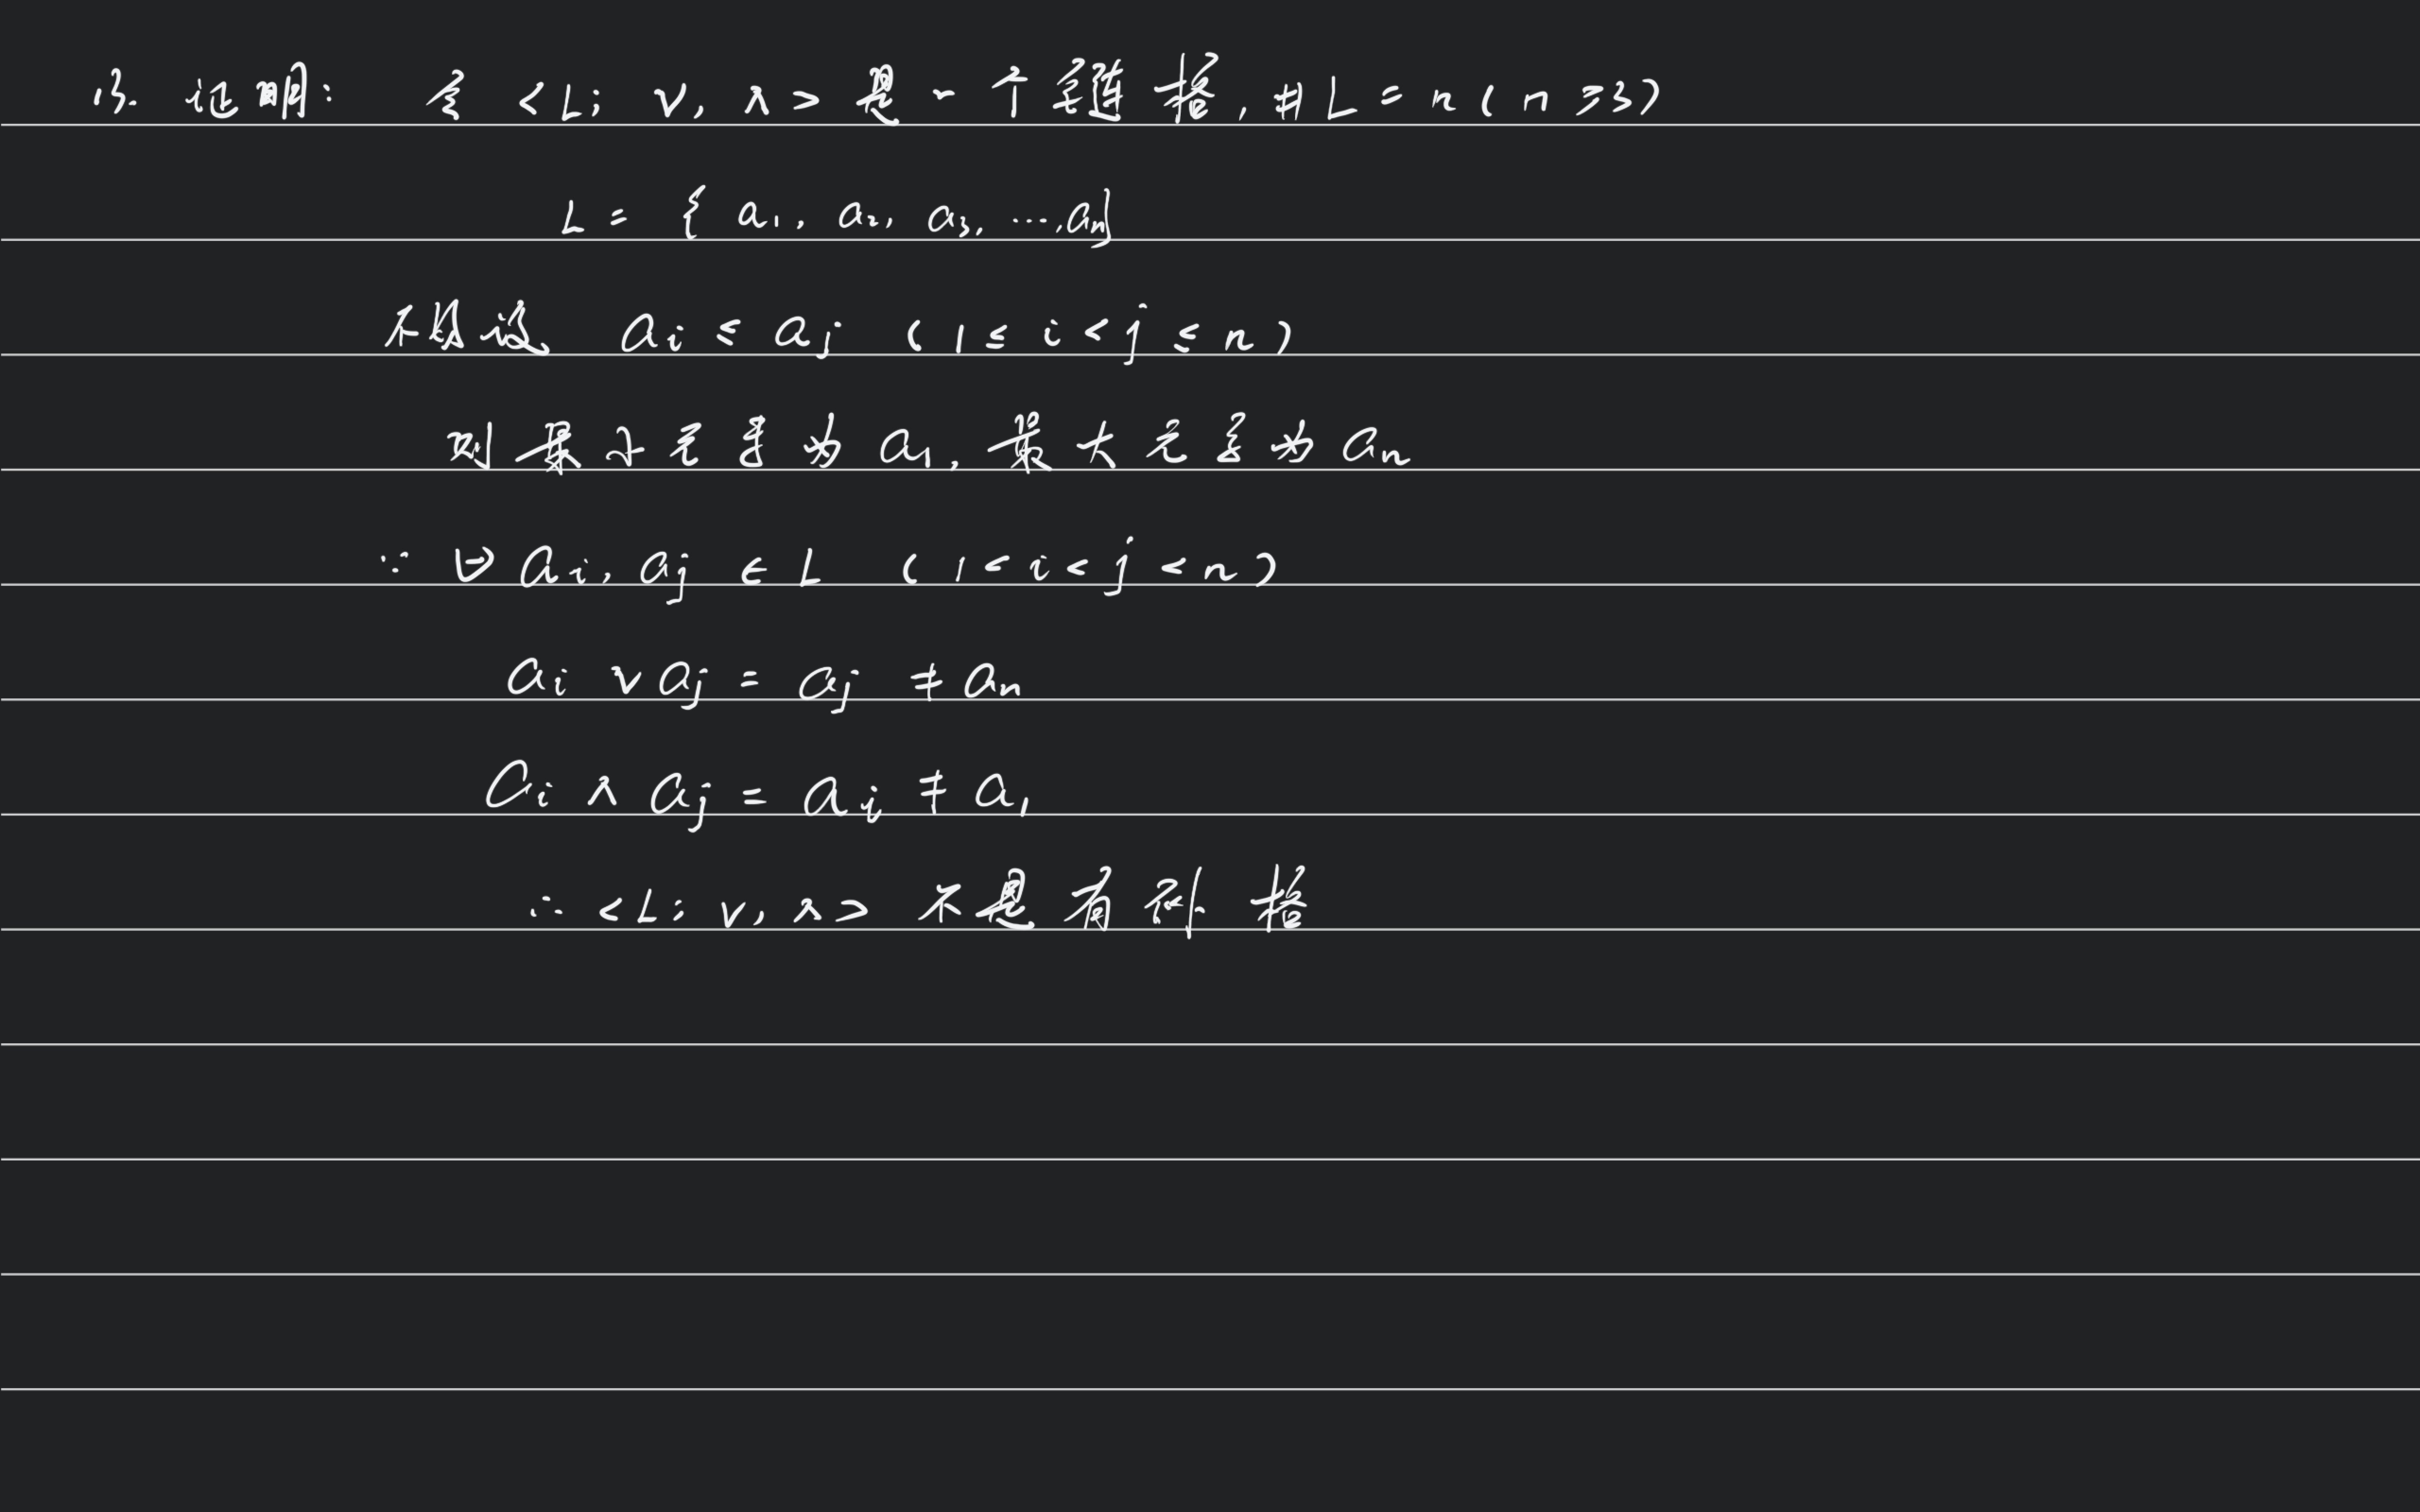 13. 证明: 令 <L; ∨, ∧> 是一个链格, #L = n (n ≥ 3)
L = { a₁, a₂, a₃, ..., aₙ}
不妨设 aᵢ ≤ aⱼ (1 ≤ i < j ≤ n)
则最小元素为 a₁, 最大元素为 aₙ
∵ ∀ aᵢ, aⱼ ∈ L (1 < i < j < n)
aᵢ ∨ aⱼ = aⱼ ≠ aₙ
aᵢ ∧ aⱼ = aᵢ ≠ a₁
∴ <L; ∨, ∧> 不是有补格